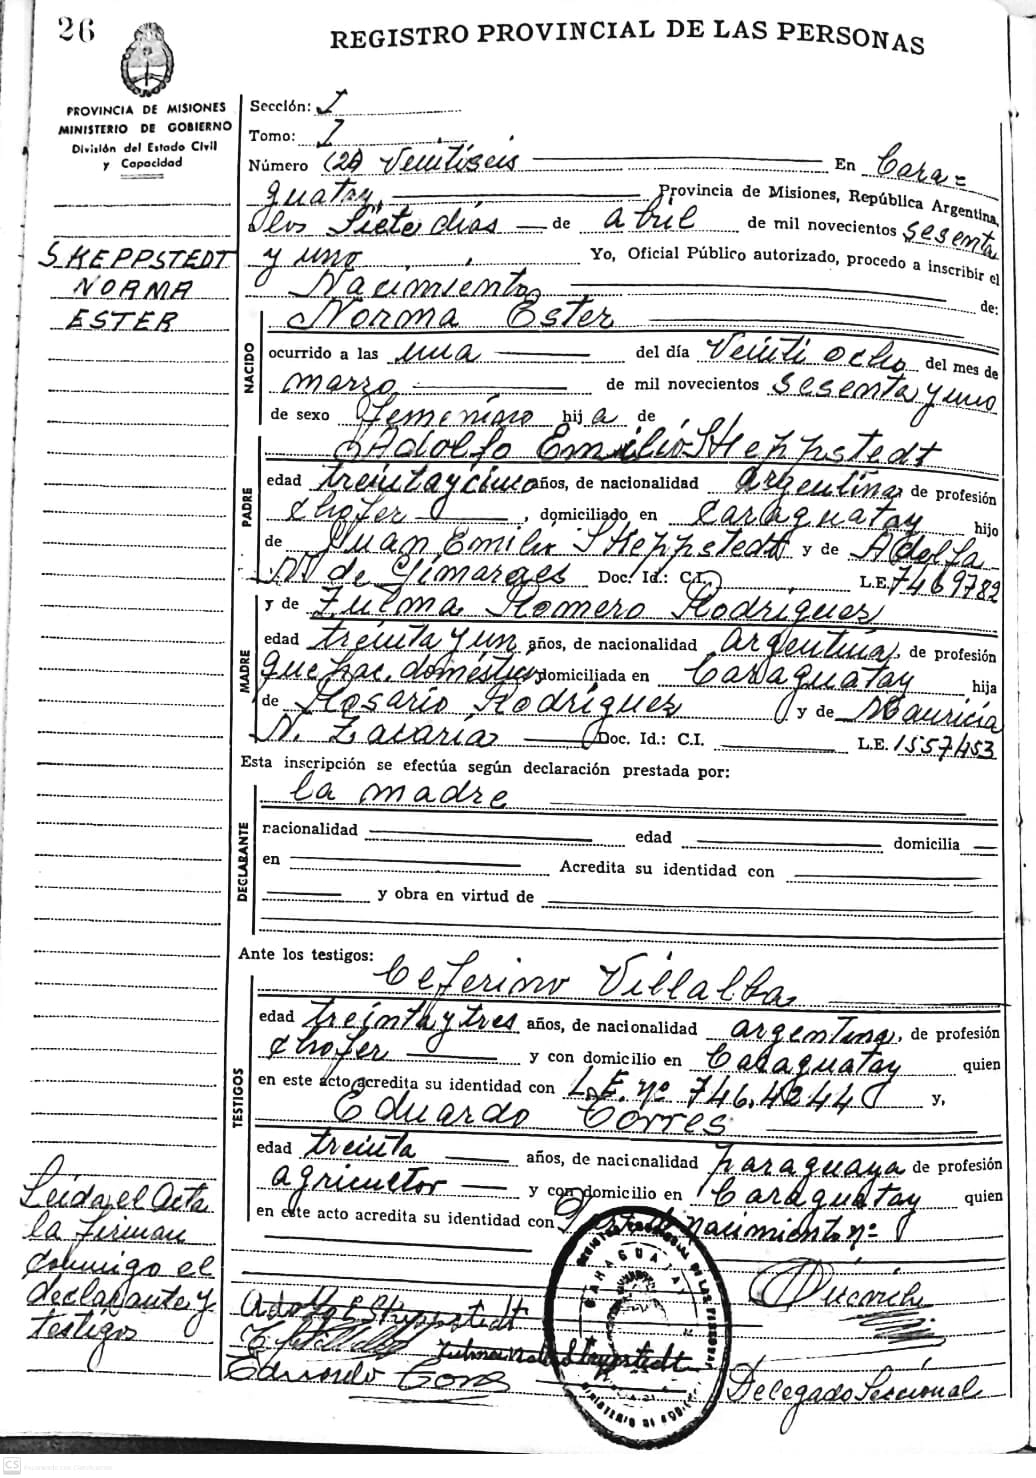 26
REGISTRO PROVINCIAL DE LAS PERSONAS
PROVINCIA DE MISIONES
MINISTERIO DE GOBIERNO
División del Estado Civil
y Capacidad
SKEPPSTEDT
NORMA
ESTER
Sección: I
Tomo: I
Número (26) Veintiseis En Cara=
guatay, Provincia de Misiones, República Argentina,
a los Siete días de abril de mil novecientos sesenta
y uno Yo, Oficial Público autorizado, procedo a inscribir el
Nacimiento de:
Norma Ester
NACIDO
ocurrido a las una del día Veinti ocho del mes de
marzo de mil novecientos sesenta y uno
de sexo Femenino hij a de
Adolfo Emilio Skeppstedt
PADRE
edad treinta y cinco años, de nacionalidad argentina de profesión
chofer, domiciliado en Caraguatay hijo
de Juan Emilio Skeppstedt y de Adelfa
M de Gimaraes Doc. Id.: C.I. L.E. 7469782
y de Zulma Romero Rodriguez
MADRE
edad treinta y un años, de nacionalidad argentina, de profesión
quehac. doméstico domiciliada en Caraguatay hija
de Rosario Rodriguez y de Mauricia
N. Zacaria Doc. Id.: C.I. L.E. 1557453
Esta inscripción se efectúa según declaración prestada por:
la madre
DECLARANTE
nacionalidad edad domicilia
en Acredita su identidad con
y obra en virtud de
Ante los testigos:
Ceferino Villalba
TESTIGOS
edad treinta y tres años, de nacionalidad argentina, de profesión
chofer y con domicilio en Caraguatay quien
en este acto acredita su identidad con L.E. nº 746.4244 y,
Eduardo Torres
edad treinta años, de nacionalidad paraguaya de profesión
agricultor y con domicilio en Caraguatay quien
en este acto acredita su identidad con nacimiento nº
Leida el Acta
la firman
conmigo el
declarante y
testigos
Adolfo E Skeppstedt
Skeppstedt
Eduardo Torres
REGISTRO PROVINCIAL DE LAS PERSONAS
CARAGUATAY
MINISTERIO DE GOB
Delegado Seccional
CS